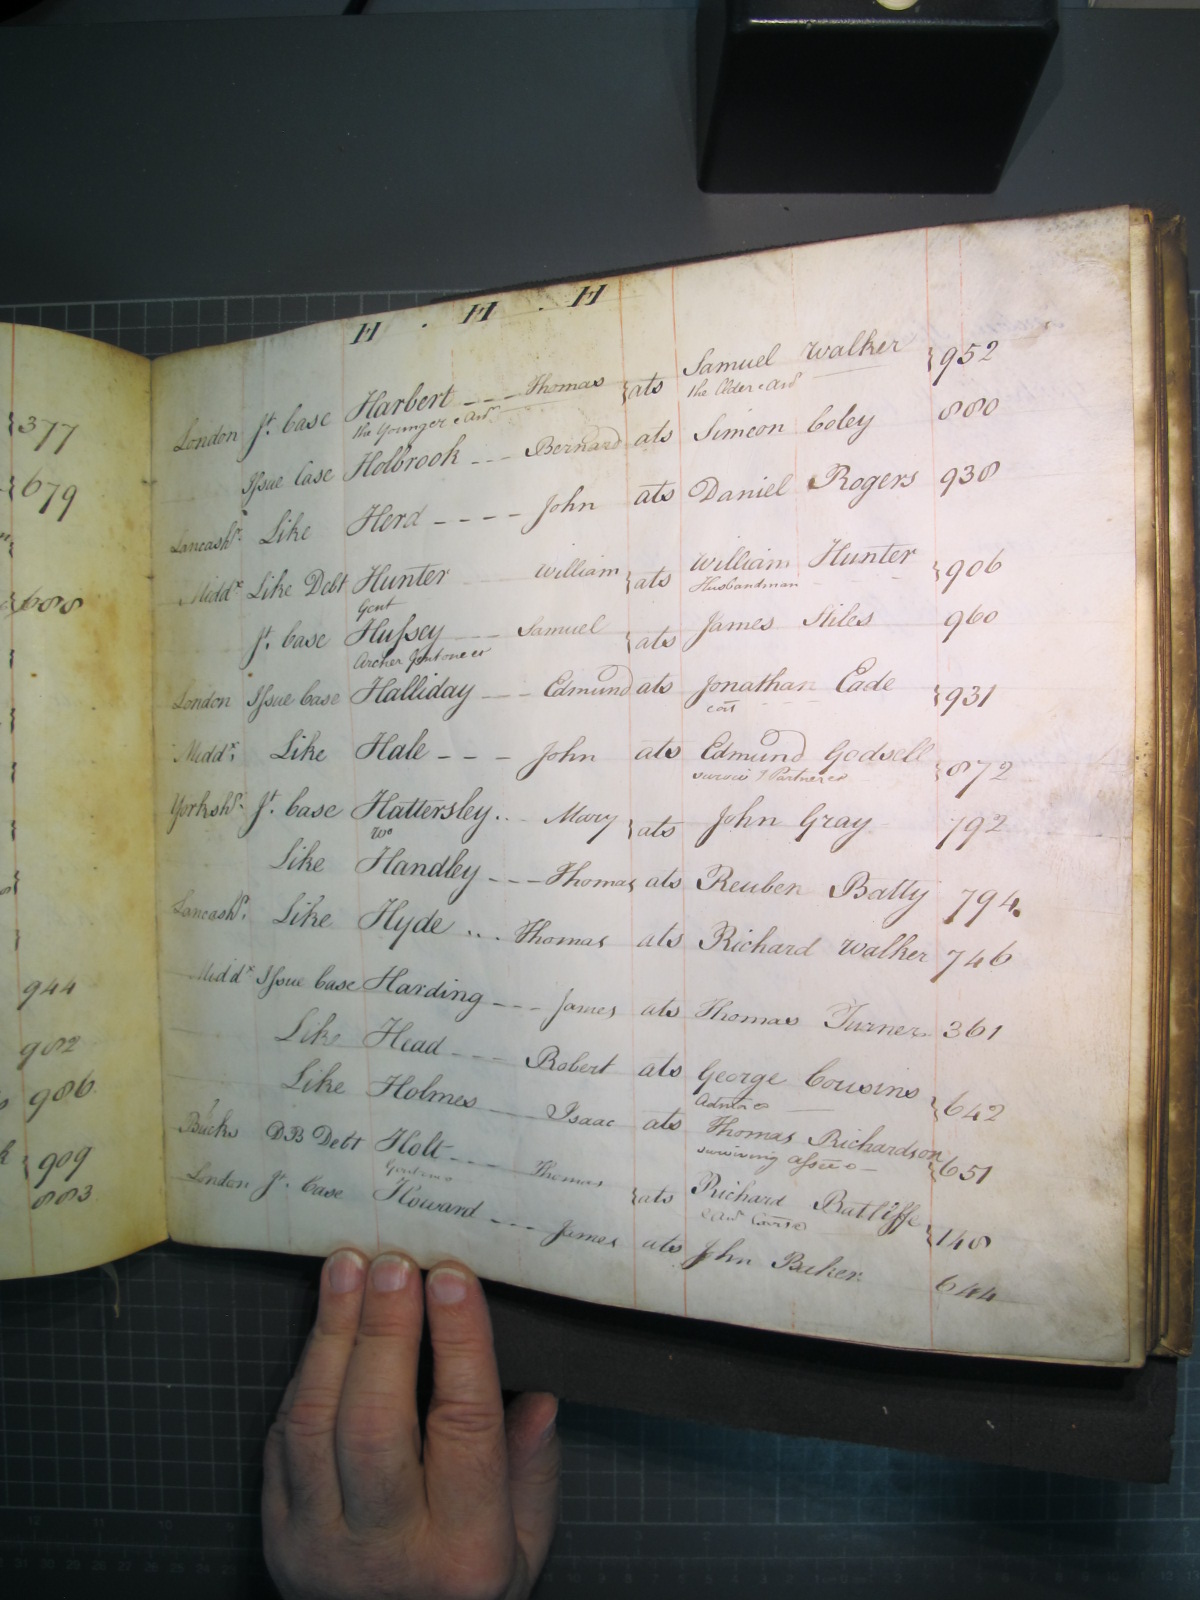 377
679
688
944
982
986
909
883
H . H . H
London Jt. Case Harbert --- Thomas } ats Samuel Walker } 952
the Younger the Elder
Issue Case Holbrook --- Bernard ats Simeon Coley 880
Lancashr. Like Herd ---- John ats Daniel Rogers 938
Middx. Like Debt Hunter William } ats William Hunter } 906
Gent Husbandman
Jt. Case Hussey --- Samuel } ats James Stiles 960
Archer
London Issue Case Halliday --- Edmund ats Jonathan Eade } 931
Middx. Like Hale --- John ats Edmund Godsell } 872
Yorkshr. Jt. Case Hattersley .. Mary } ats John Gray 792
Wo
Like Handley --- Thomas ats Reuben Batty 794
Lancashr. Like Hyde ... Thomas ats Richard Walker 746
Middx Issue Case Harding --- James ats Thomas Turner 361
Like Head --- Robert ats George Cousins } 642
Like Holmes --- Isaac ats Thomas Richardson } 651
surviving
Bucks DB Debt Holt --- Thomas } ats Richard Batliffe } 148
London Jt. Case Howard --- James ats John Baker 644